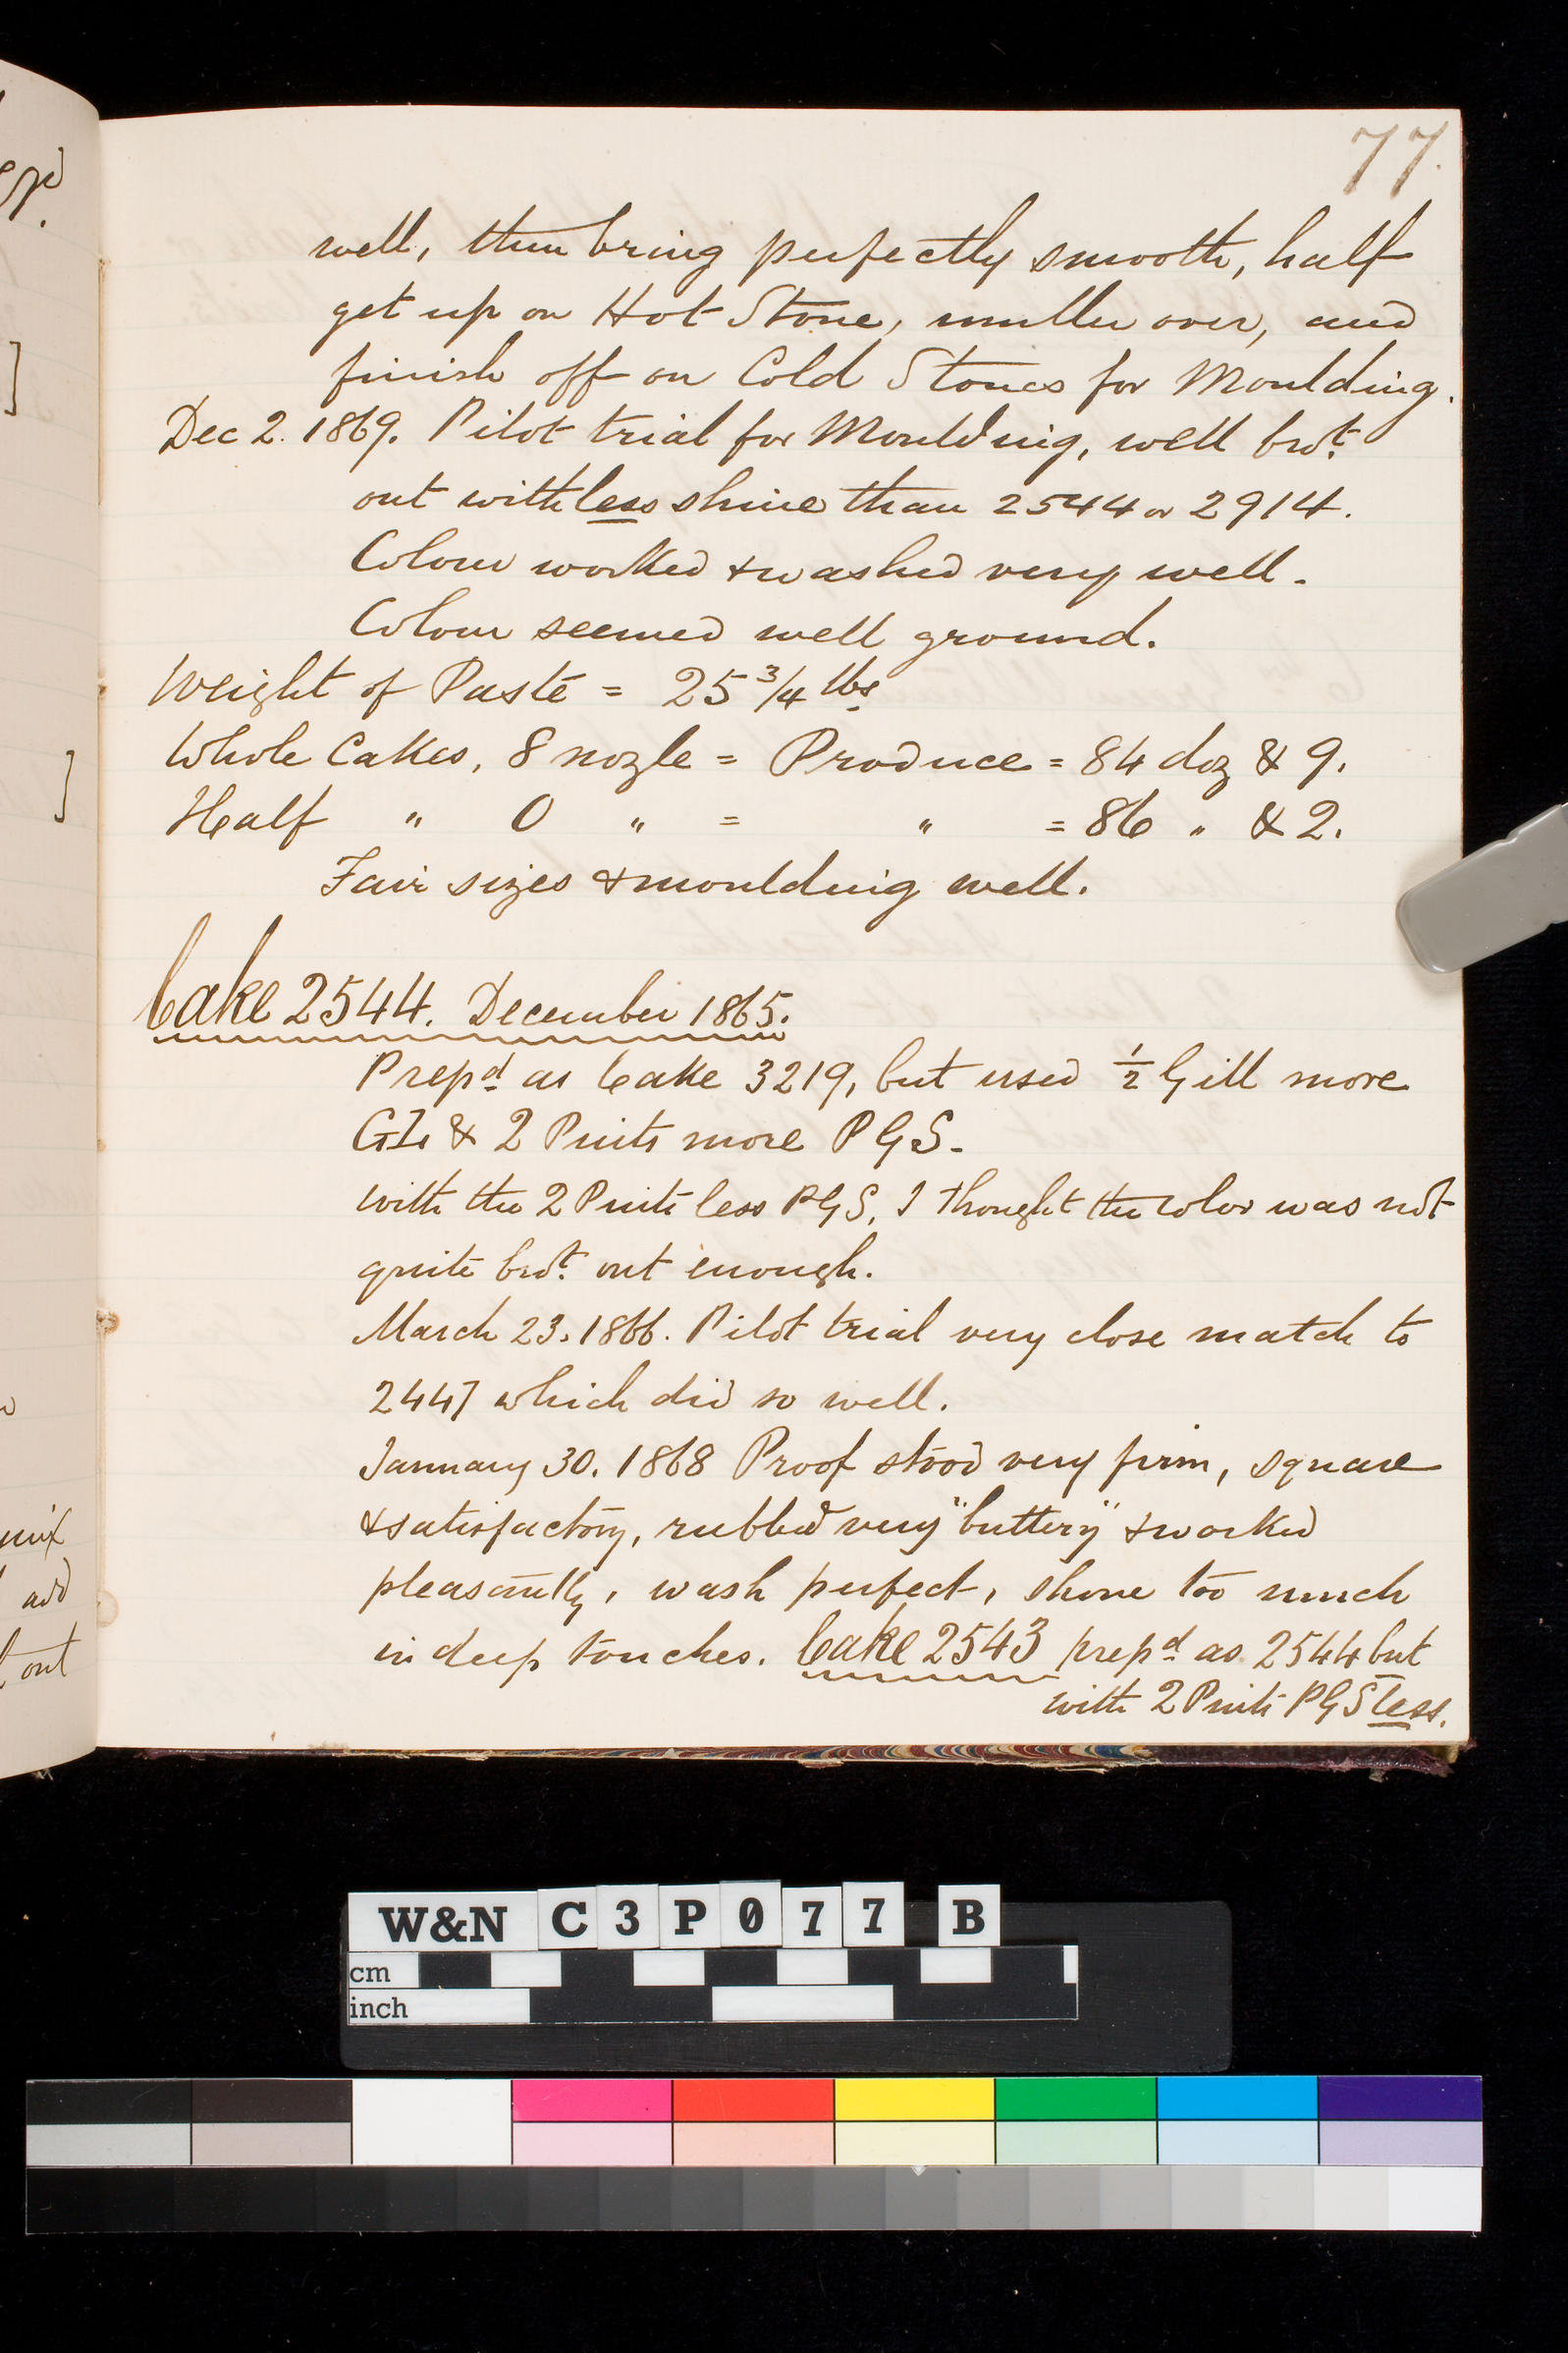 77.
well, then bring perfectly smooth, half
get up on Hot Stone, muller over, and
finish off on Cold Stones for Moulding.
Dec 2. 1869. Pilot trial for Moulding, well brot.
out with less shine than 2544 or 2914.
Colour worked & washed very well.
Colour seemed well ground.
Weight of Paste = 25 3/4 lbs.
Whole Cakes, 8 nozle = Produce = 84 doz & 9.
Half " 0 " = " = 86 " & 2.
Fair sizes & moulding well.
Cake 2544. December 1865.
Prepd as Cake 3219, but used 1/2 Gill more
& 2 Pints more PGS.
With the 2 Pints less PGS, I thought the color was not
quite brot. out enough.
March 23. 1866. Pilot trial very close match to
2447 which did so well.
January 30. 1868 Proof stood very firm, square
& satisfactory, rubbed very "buttery" & worked
pleasantly, wash perfect, shone too much
in deep touches. Cake 2543 prepd as 2544 but
with 2 Pints PGS less.
mix
add
out
W&N C3P077 B
cm
inch